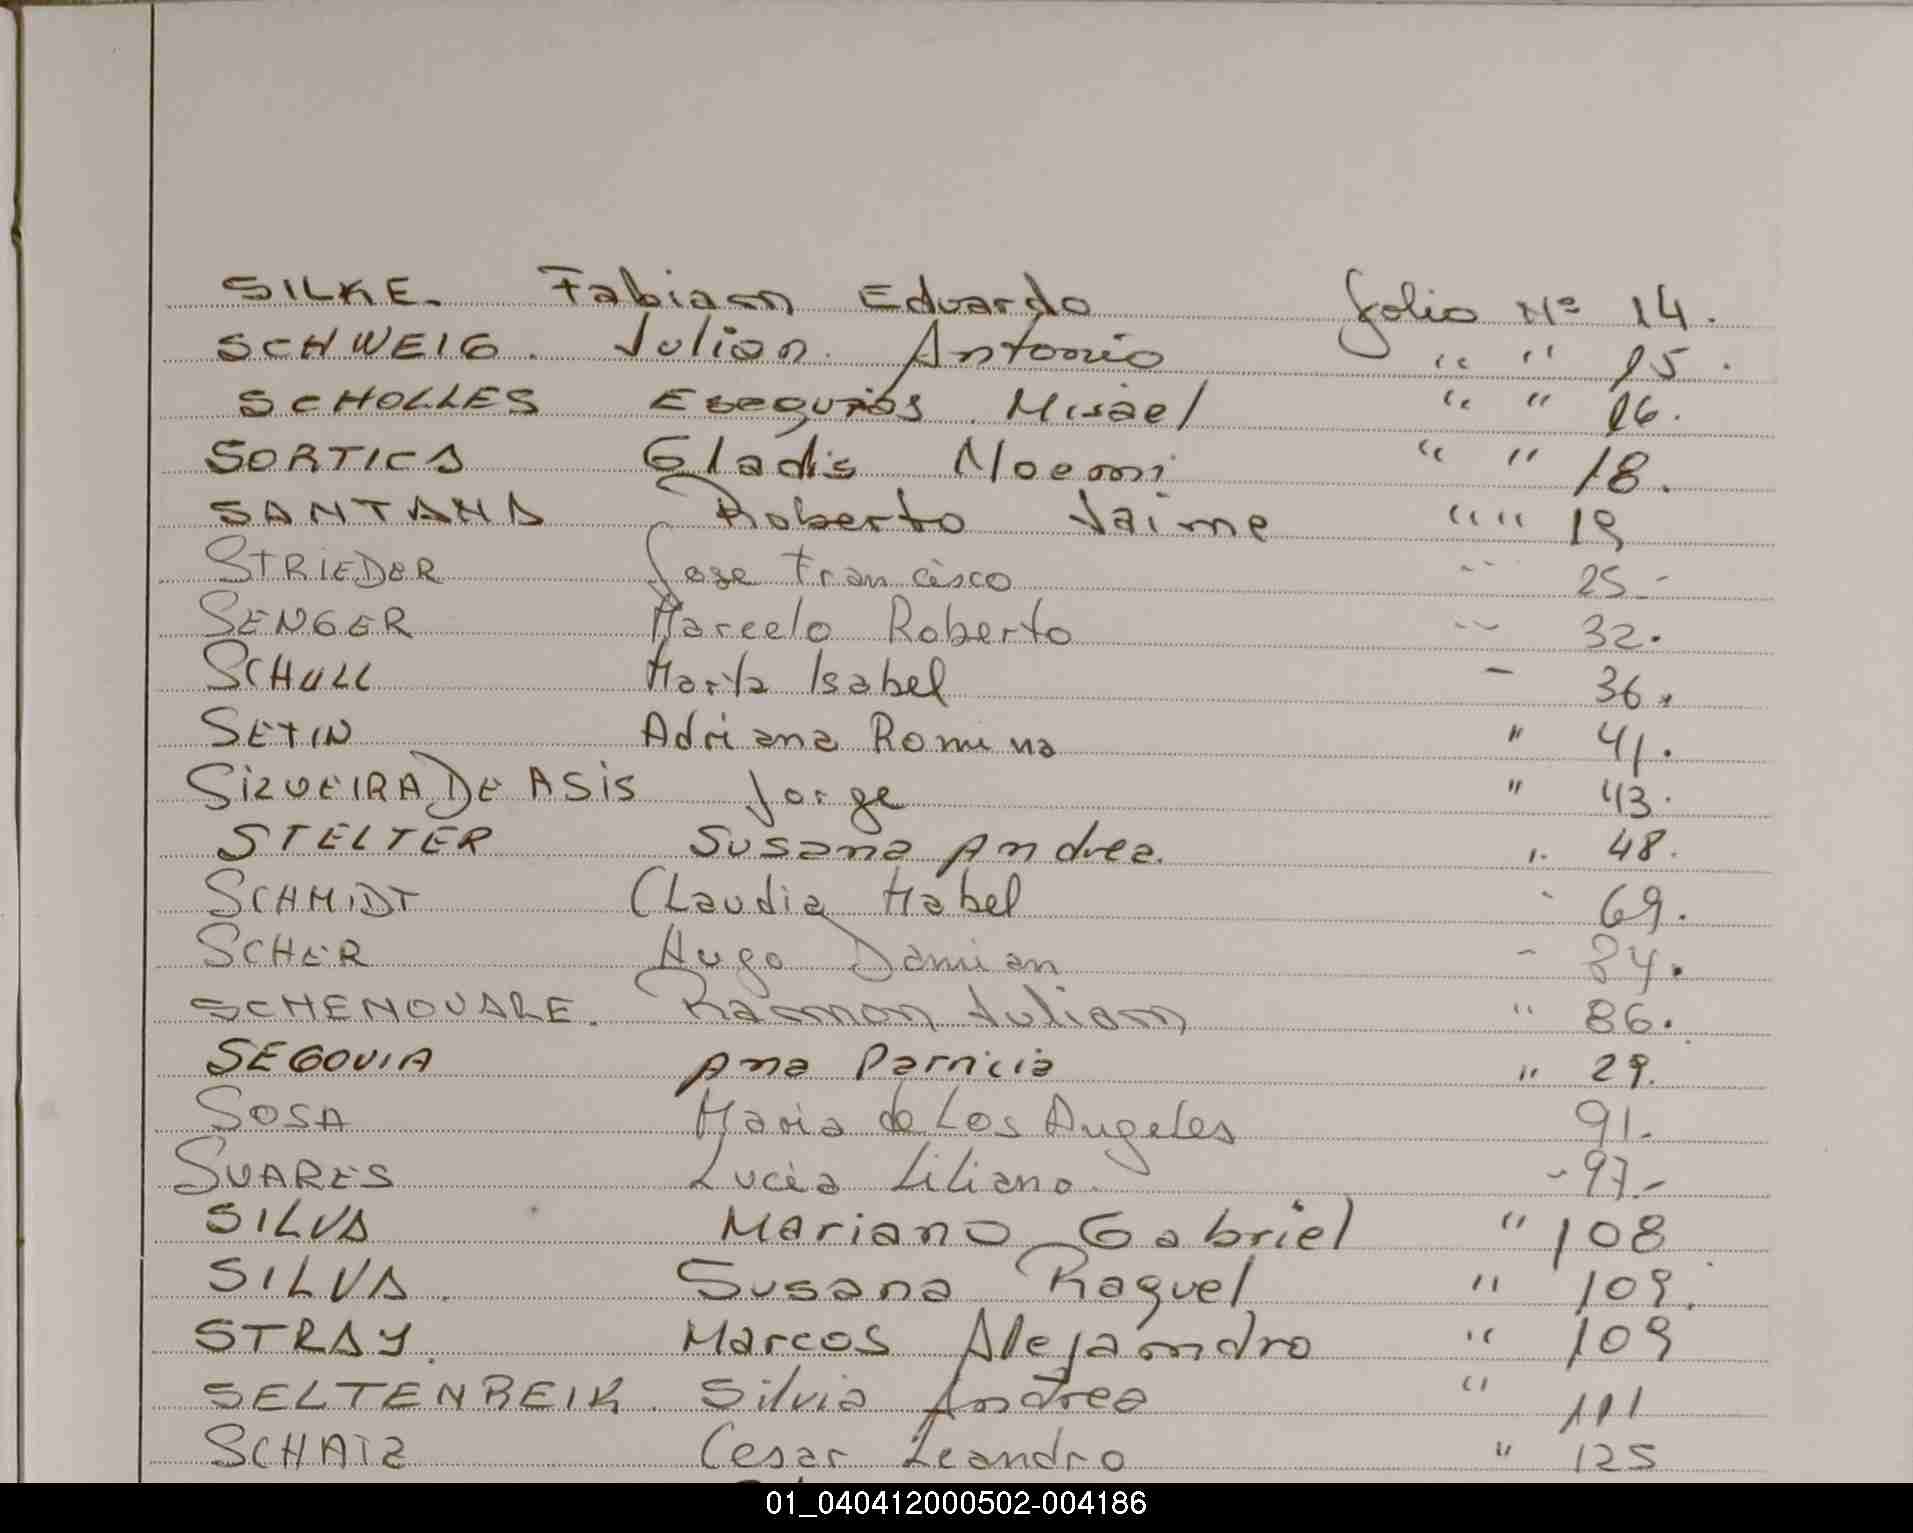 SILKE. Fabian Eduardo folio Nº 14.
SCHWEIG. Julian Antonio " " 15.
SCHOLLES Misael " " 16.
SORTICA Gladis Noemi " " 18.
SANTANA Roberto Jaime " " 19
STRIEDER Jose Francisco " 25-
SENGER Marcelo Roberto " 32.
SCHULL Marta Isabel - 36.
SETIN Adriana Romina " 41.
SILVEIRA DE ASIS Jorge " 43.
STELTER Susana Andrea. " 48.
SCHMIDT Claudia Mabel " 69.
SCHER Hugo Damian - 84.
SCHENOVARE. Ramon Julian " 86.
SEGOVIA Ana Patricia " 29.
SOSA Maria de Los Angeles 91.
SUARES Lucia Liliana. - 97.-
SILVA Mariano Gabriel " 108
SILVA. Susana Raquel " 109.
STRAY. Marcos Alejandro " 109
SELTENREIK. Silvia Andrea " 111
SCHATZ Cesar Leandro " 125
01_040412000502-004186